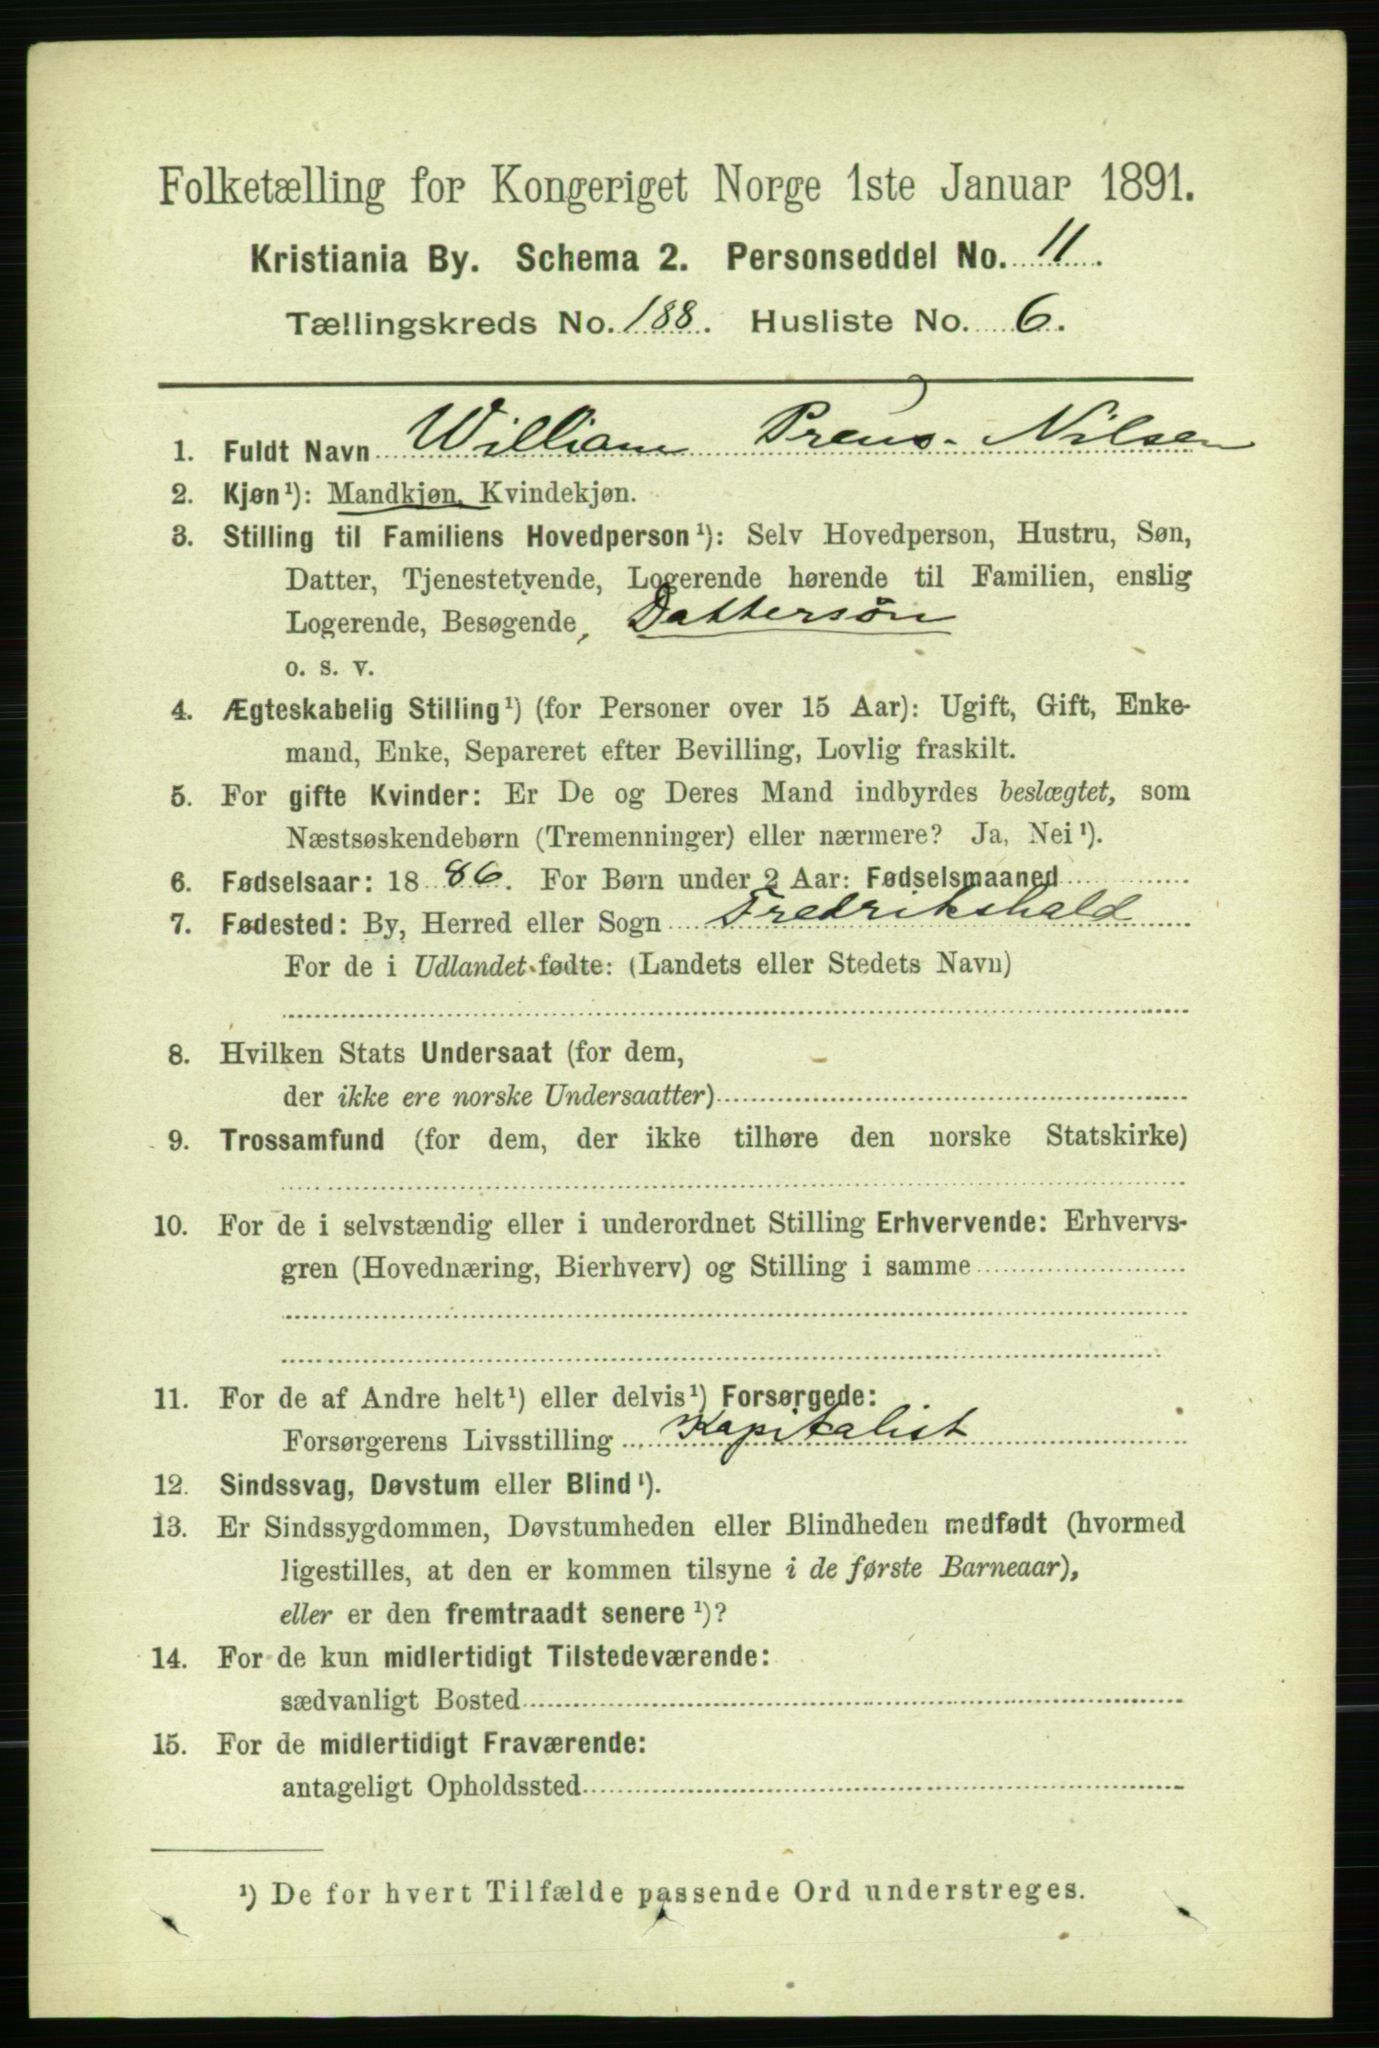 Folketælling for Kongeriget Norge 1ste Januar 1891.
Kristiania By. Schema 2. Personseddel No. 11.
Tællingskreds No. 188. Husliste No. 6.
1. Fuldt Navn William Preus-Nilsen
2. Kjøn¹): Mandkjøn, Kvindekjøn.
3. Stilling til Familiens Hovedperson¹): Selv Hovedperson, Hustru, Søn,
Datter, Tjenestetyende, Logerende hørende til Familien, enslig
Logerende, Besøgende, Dattersön
o. s. v.
4. Ægteskabelig Stilling¹) (for Personer over 15 Aar): Ugift, Gift, Enke-
mand, Enke, Separeret efter Bevilling, Lovlig fraskilt.
5. For gifte Kvinder: Er De og Deres Mand indbyrdes beslægtet, som
Næstsøskendebørn (Tremenninger) eller nærmere? Ja, Nei¹).
6. Fødselsaar: 1886. For Børn under 2 Aar: Fødselsmaaned
7. Fødested: By, Herred eller Sogn Fredrikshald
For de i Udlandet fødte: (Landets eller Stedets Navn)
8. Hvilken Stats Undersaat (for dem,
der ikke ere norske Undersaatter)
9. Trossamfund (for dem, der ikke tilhøre den norske Statskirke)
10. For de i selvstændig eller i underordnet Stilling Erhvervende: Erhvervs-
gren (Hovednæring, Bierhverv) og Stilling i samme
11. For de af Andre helt¹) eller delvis¹) Forsørgede:
Forsørgerens Livsstilling Kapitalist
12. Sindssvag, Døvstum eller Blind¹).
13. Er Sindssygdommen, Døvstumheden eller Blindheden medfødt (hvormed
ligestilles, at den er kommen tilsyne i de første Barneaar),
eller er den fremtraadt senere¹)?
14. For de kun midlertidigt Tilstedeværende:
sædvanligt Bosted
15. For de midlertidigt Fraværende:
antageligt Opholdssted
¹) De for hvert Tilfælde passende Ord understreges.